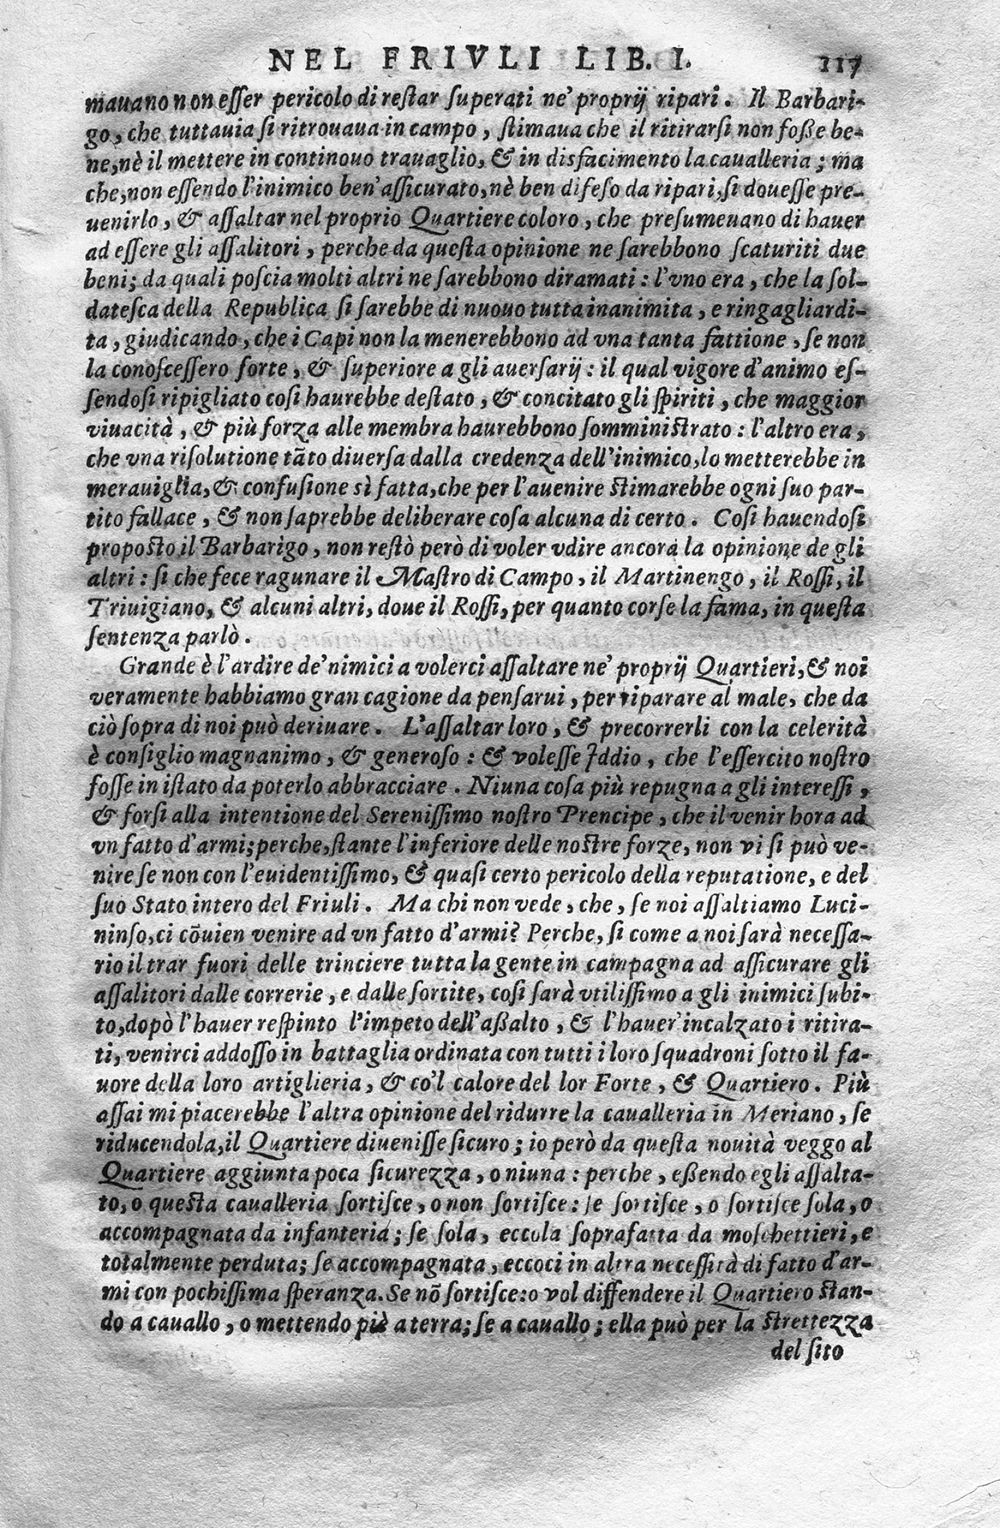 NEL FRIVLI LIB. I. 117
mauano non esser pericolo di restar superati ne' proprij ripari. Il Barbari-
go, che tuttauia si ritrouaua in campo, stimaua che il ritirarsi non foße be-
ne, nè il mettere in continouo trauaglio, & in disfacimento la caualleria; ma
che, non essendo l'inimico ben' assicurato, nè ben difeso da ripari, si douesse pre-
uenirlo, & assaltar nel proprio Quartiere coloro, che presumeuano di hauer
ad essere gli assalitori, perche da questa opinione ne sarebbono scaturiti due
beni; da quali poscia molti altri ne sarebbono diramati: l'vno era, che la sol-
datesca della Republica si sarebbe di nuouo tutta inanimita, e ringagliardi-
ta, giudicando, che i Capi non la menerebbono ad vna tanta fattione, se non
la conoscessero forte, & superiore a gli auersarij: il qual vigore d'animo es-
sendosi ripigliato cosi haurebbe destato, & concitato gli spiriti, che maggior
viuacità, & più forza alle membra haurebbono somministrato: l'altro era,
che vna risolutione tãto diuersa dalla credenza dell'inimico, lo metterebbe in
merauiglia, & confusione sì fatta, che per l'auenire stimarebbe ogni suo par-
tito fallace, & non saprebbe deliberare cosa alcuna di certo. Cosi hauendosi
proposto il Barbarigo, non restò però di voler vdire ancora la opinione de gli
altri: si che fece ragunare il Mastro di Campo, il Martinengo, il Rossi, il
Triuigiano, & alcuni altri, doue il Rossi, per quanto corse la fama, in questa
sentenza parlò.
Grande è l'ardire de' nimici a volerci assaltare ne' proprij Quartieri, & noi
veramente habbiamo gran cagione da pensarui, per riparare al male, che da
ciò sopra di noi può deriuare. L'assaltar loro, & precorrerli con la celerità
è consiglio magnanimo, & generoso: & volesse Iddio, che l'essercito nostro
fosse in istato da poterlo abbracciare. Niuna cosa più repugna a gli interessi,
& forsi alla intentione del Serenissimo nostro Prencipe, che il venir hora ad
vn fatto d'armi; perche, stante l'inferiore delle nostre forze, non vi si può ve-
nire se non con l'euidentissimo, & quasi certo pericolo della reputatione, e del
suo Stato intero del Friuli. Ma chi non vede, che, se noi assaltiamo Luci-
ninso, ci cõuien venire ad vn fatto d'armi? Perche, si come a noi sarà necessa-
rio il trar fuori delle trinciere tutta la gente in campagna ad assicurare gli
assalitori dalle correrie, e dalle sortite, cosi sarà vtilissimo a gli inimici subi-
to, dopò l'hauer respinto l'impeto dell'aßalto, & l'hauer incalzato i ritira-
ti, venirci addosso in battaglia ordinata con tutti i loro squadroni sotto il fa-
uore della loro artiglieria, & co'l calore del lor Forte, & Quartiero. Più
assai mi piacerebbe l'altra opinione del ridurre la caualleria in Meriano, se
riducendola, il Quartiere diuenisse sicuro; io però da questa nouità veggo al
Quartiere aggiunta poca sicurezza, o niuna: perche, eßendo egli assalta-
to, o questa caualleria sortisce, o non sortisce: se sortisce, o sortisce sola, o
accompagnata da infanteria; se sola, eccola soprafatta da moschettieri, e
totalmente perduta; se accompagnata, eccoci in altra necessità di fatto d'ar-
mi con pochissima speranza. Se nõ sortisce: o vol diffendere il Quartiero stan-
do a cauallo, o mettendo piè a terra; se a cauallo; ella può per la strettezza
del sito